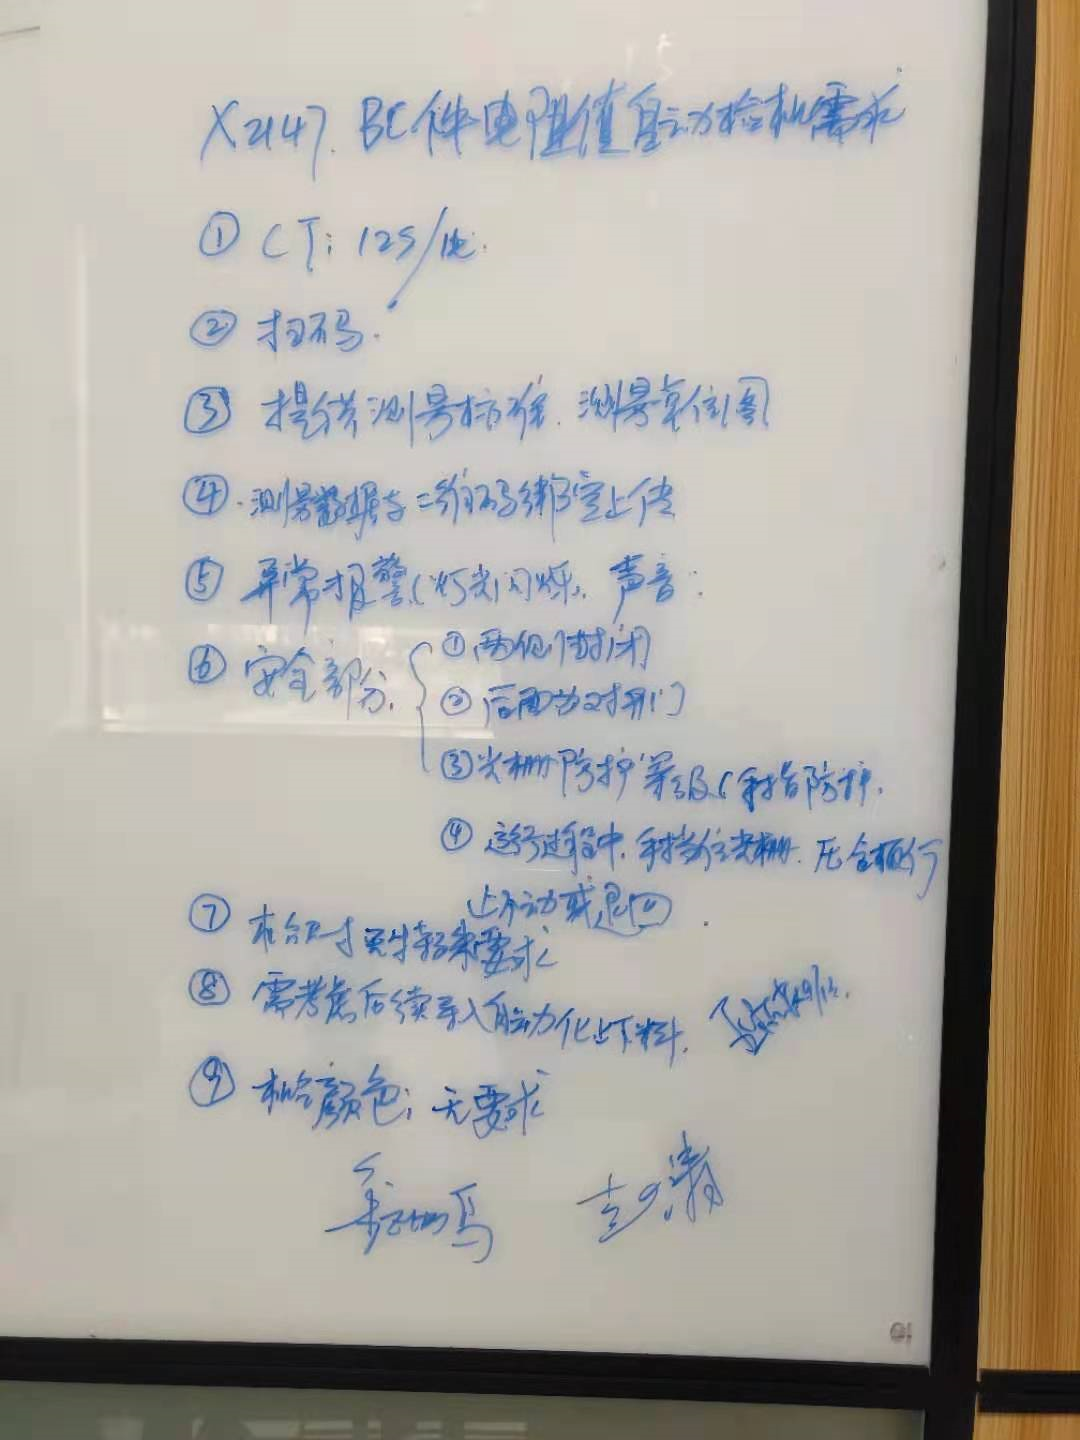 X2147. BC件电阻值自动检机需求
① CT: 12S/pc.
② 扫码.
③ 提供测量标准. 测量点位图
④. 测量数据与二维码绑定上传
⑤ 异常报警(灯光闪烁). 声音.
⑥ 安全部分.
① 两侧封闭
② 后面为对开门
③ 光栅防护等级(手指防护.
④ 运行过程中, 手挡住光栅. 压合板行
止不动或退回.
⑦ 机台尺寸无特殊要求
⑧ 需考虑后续导入自动化上下料.
⑨ 机台颜色: 无要求